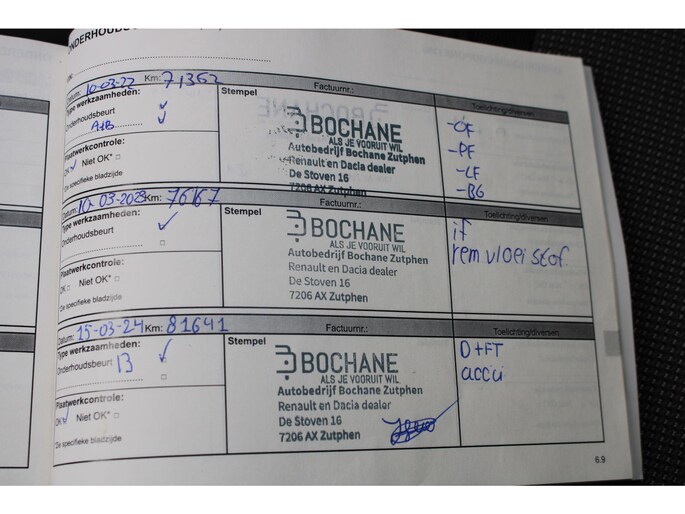 Datum: 10-03-22 Km: 71352
Factuurnr.:
Toelichting/diversen
Type werkzaamheden:
Onderhoudsbeurt
A+B
Plaatwerkcontrole:
OK Niet OK*
De specifieke bladzijde
Stempel
BOCHANE
ALS JE VOORUIT WIL
Autobedrijf Bochane Zutphen
Renault en Dacia dealer
De Stoven 16
7206 AX Zutphen
-OF
-PF
-LF
-BG
Datum: 10-03-2023 Km: 76167
Factuurnr.:
Toelichting/diversen
Type werkzaamheden:
Onderhoudsbeurt
Plaatwerkcontrole:
OK Niet OK*
De specifieke bladzijde
Stempel
BOCHANE
ALS JE VOORUIT WIL
Autobedrijf Bochane Zutphen
Renault en Dacia dealer
De Stoven 16
7206 AX Zutphen
if
remvloeistof
Datum: 15-03-24 Km: 81641
Factuurnr.:
Toelichting/diversen
Type werkzaamheden:
Onderhoudsbeurt B
Plaatwerkcontrole:
OK Niet OK*
De specifieke bladzijde
Stempel
BOCHANE
ALS JE VOORUIT WIL
Autobedrijf Bochane Zutphen
Renault en Dacia dealer
De Stoven 16
7206 AX Zutphen
D+FT
accu
6.9